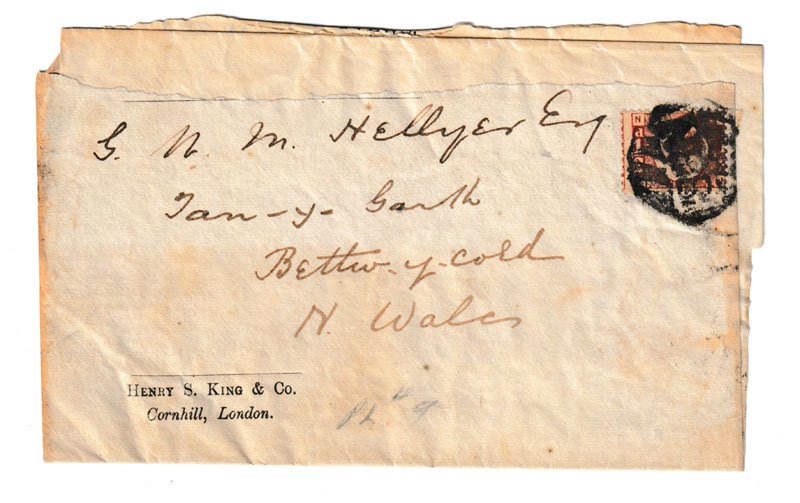 G. N. M. Hellyer Esq
Tan-y-Garth
Bettw-y-coed
N. Wales
HENRY S. KING & CO.
Cornhill, London.
Pl 9